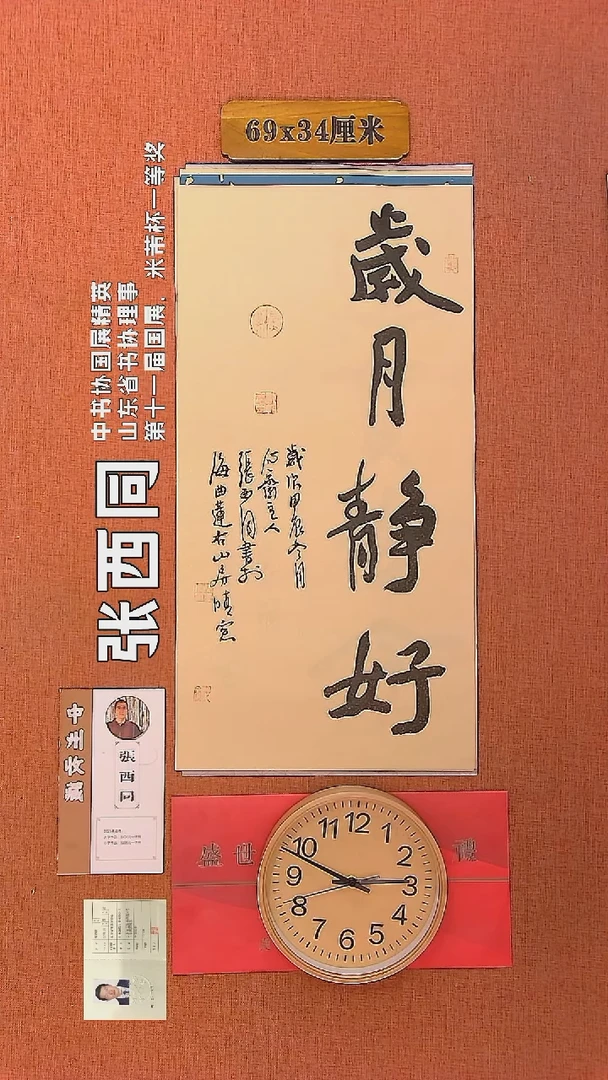 69x34厘米
歲月靜好
歲次甲辰冬月
主人
張西同書於
海曲蓮右山房晴窗
中书协国展精英
山东省书协理事
第十一届国展，米芾杯一等奖
张西同
張西同
盛世
12
1
2
3
4
5
6
7
8
9
10
11